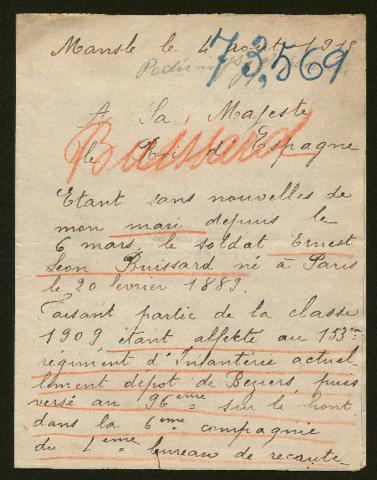 Mansle le 4 août 1918
73,569
A Sa Majeste
le Roi d'Espagne
Buissard
Etant sans nouvelles de
mon mari depuis le
6 mars, le soldat Ernest
Leon Buissard né à Paris
le 20 fevrier 1889.
Faisant partie de la classe
1909 étant affekte au 153me
régiment d'Infanterie actuel-
lement dépot de Beziers, puis
versé au 96eme sur le front
dans la 6eme compagnie
du 1eme bureau de recrute-